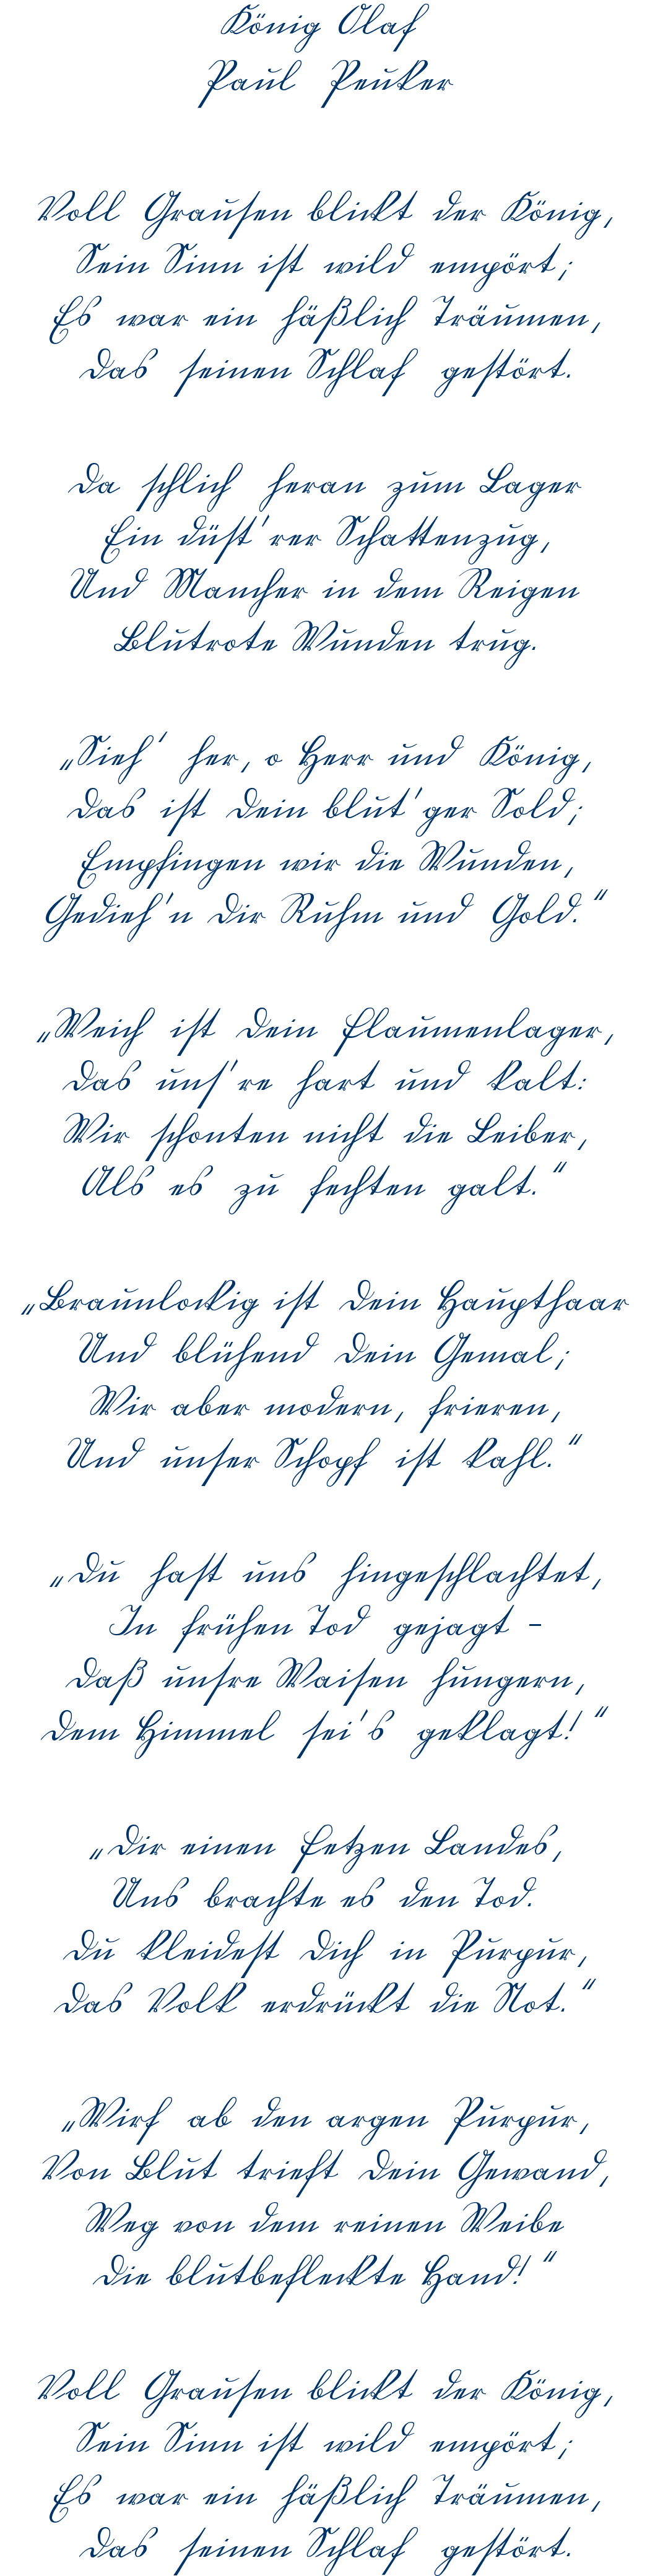 König Olaf
Paul Peuker
Voll Grausen blickt der König,
Sein Sinn ist wild empört;
Es war ein häßlich Träumen,
Das seinen Schlaf gestört.
Da schlich heran zum Lager
Ein düst'rer Schattenzug,
Und Mancher in dem Reigen
Blutrote Wunden trug.
„Sieh' her, o Herr und König,
Das ist Dein blut'ger Sold;
Empfingen wir die Wunden,
Gedieh'n Dir Ruhm und Gold.“
„Weich ist Dein Flaumenlager,
Das uns're hart und kalt:
Wir schonten nicht die Leiber,
Als es zu fechten galt.“
„Braunlockig ist Dein Haupthaar
Und blühend Dein Gemal;
Wir aber modern, frieren,
Und unser Schopf ist kahl.“
„Du hast uns hingeschlachtet,
In frühen Tod gejagt -
Daß unsre Waisen hungern,
Dem Himmel sei's geklagt!“
„Dir einen Fetzen Landes,
Uns brachte es den Tod.
Du kleidest Dich in Purpur,
Das Volk erdrückt die Not.“
„Wirf ab den argen Purpur,
Von Blut trieft Dein Gewand,
Weg von dem reinen Weibe
Die blutbefleckte Hand!“
Voll Grausen blickt der König,
Sein Sinn ist wild empört;
Es war ein häßlich Träumen,
Das seinen Schlaf gestört.